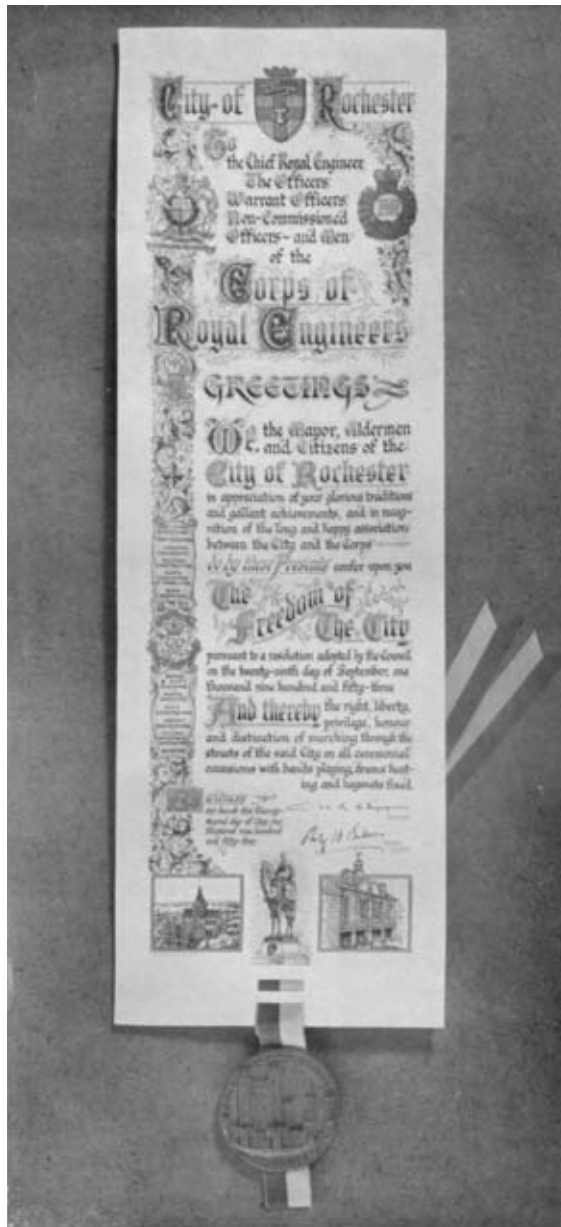 City of Rochester
To
the Chief Royal Engineer
The Officers
Warrant Officers
Non-Commissioned
Officers - and Men
of the
Corps of
Royal Engineers
GREETINGS
We, the Mayor, Aldermen
and Citizens of the
City of Rochester
in appreciation of your glorious traditions
and gallant achievements, and in recog-
nition of the long and happy association
between the City and the Corps
do by these Presents confer upon you
The
Freedom of
The City
pursuant to a resolution adopted by the Council
on the twenty-ninth day of September, one
thousand nine hundred and fifty-three
And thereby the right, liberty,
privilege, honour
and distinction of marching through the
streets of the said City on all ceremonial
occasions with bands playing, drums beat-
ing and bayonets fixed.
day of
thousand nine hundred
and fifty-four